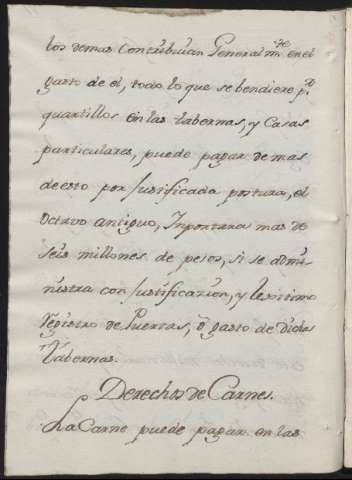 los demas Contribuian Generalm.te en el
gasto de el, todo lo que se bendiere p.r
quartillos en las tabernas, y Casas
particulares, puede pagar demas
de esto por Justificada postura, el
Octavo antiguo, Inportara mas de
seis millones de pesos, si se admi-
nistra con Justificacion, y lexitimo
registro de Puertas, ô gasto de dichas
tabernas.
Derechos de Carnes.
La Carne puede pagar en las